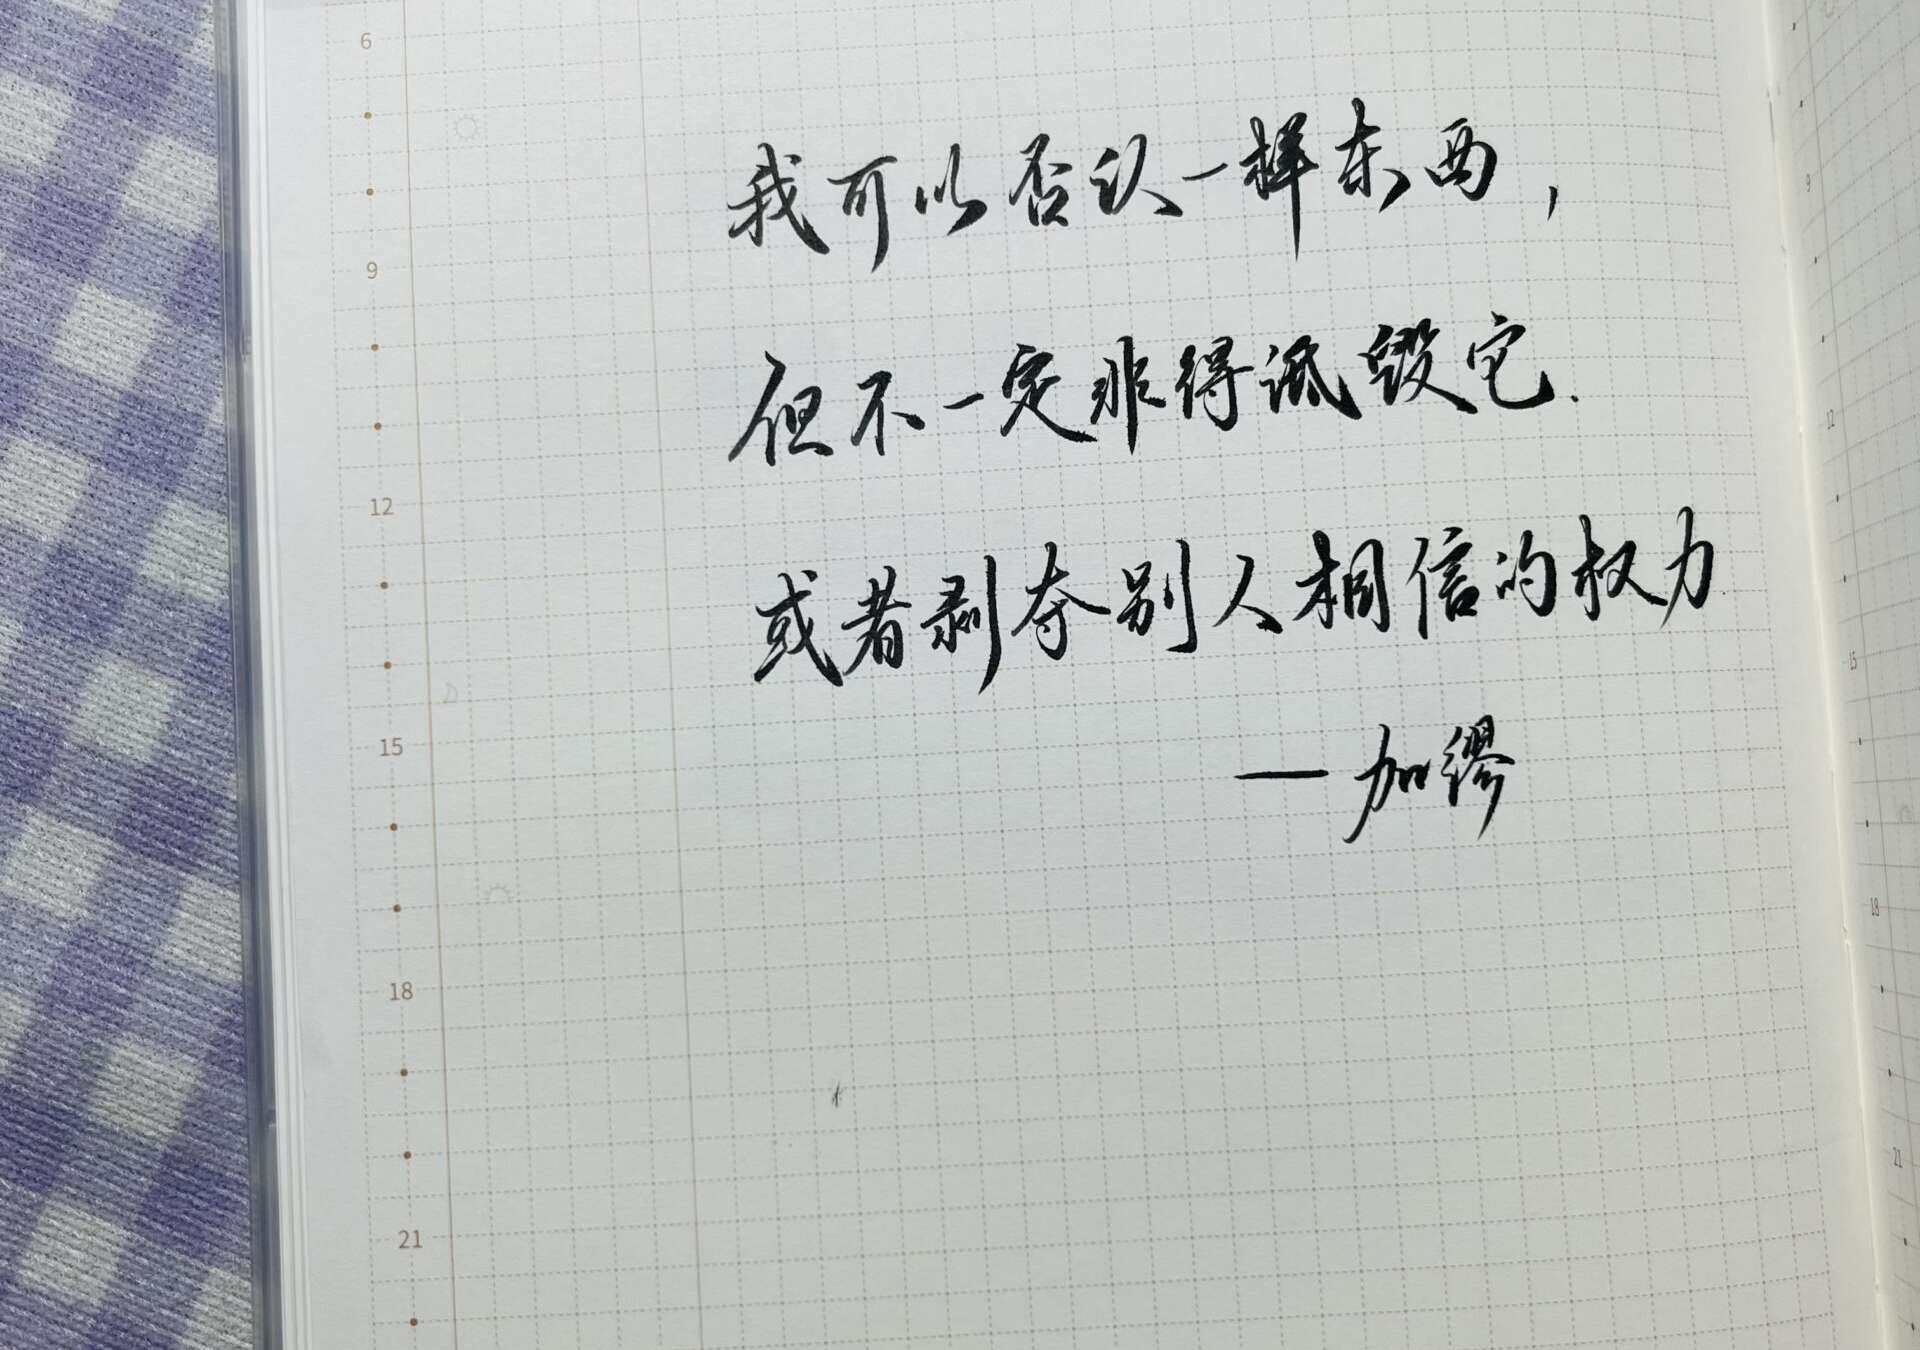 6
9
12
15
18
21
我可以否认一样东西，
但不一定非得诋毁它.
或者剥夺别人相信的权力
—加缪
9
12
15
18
21